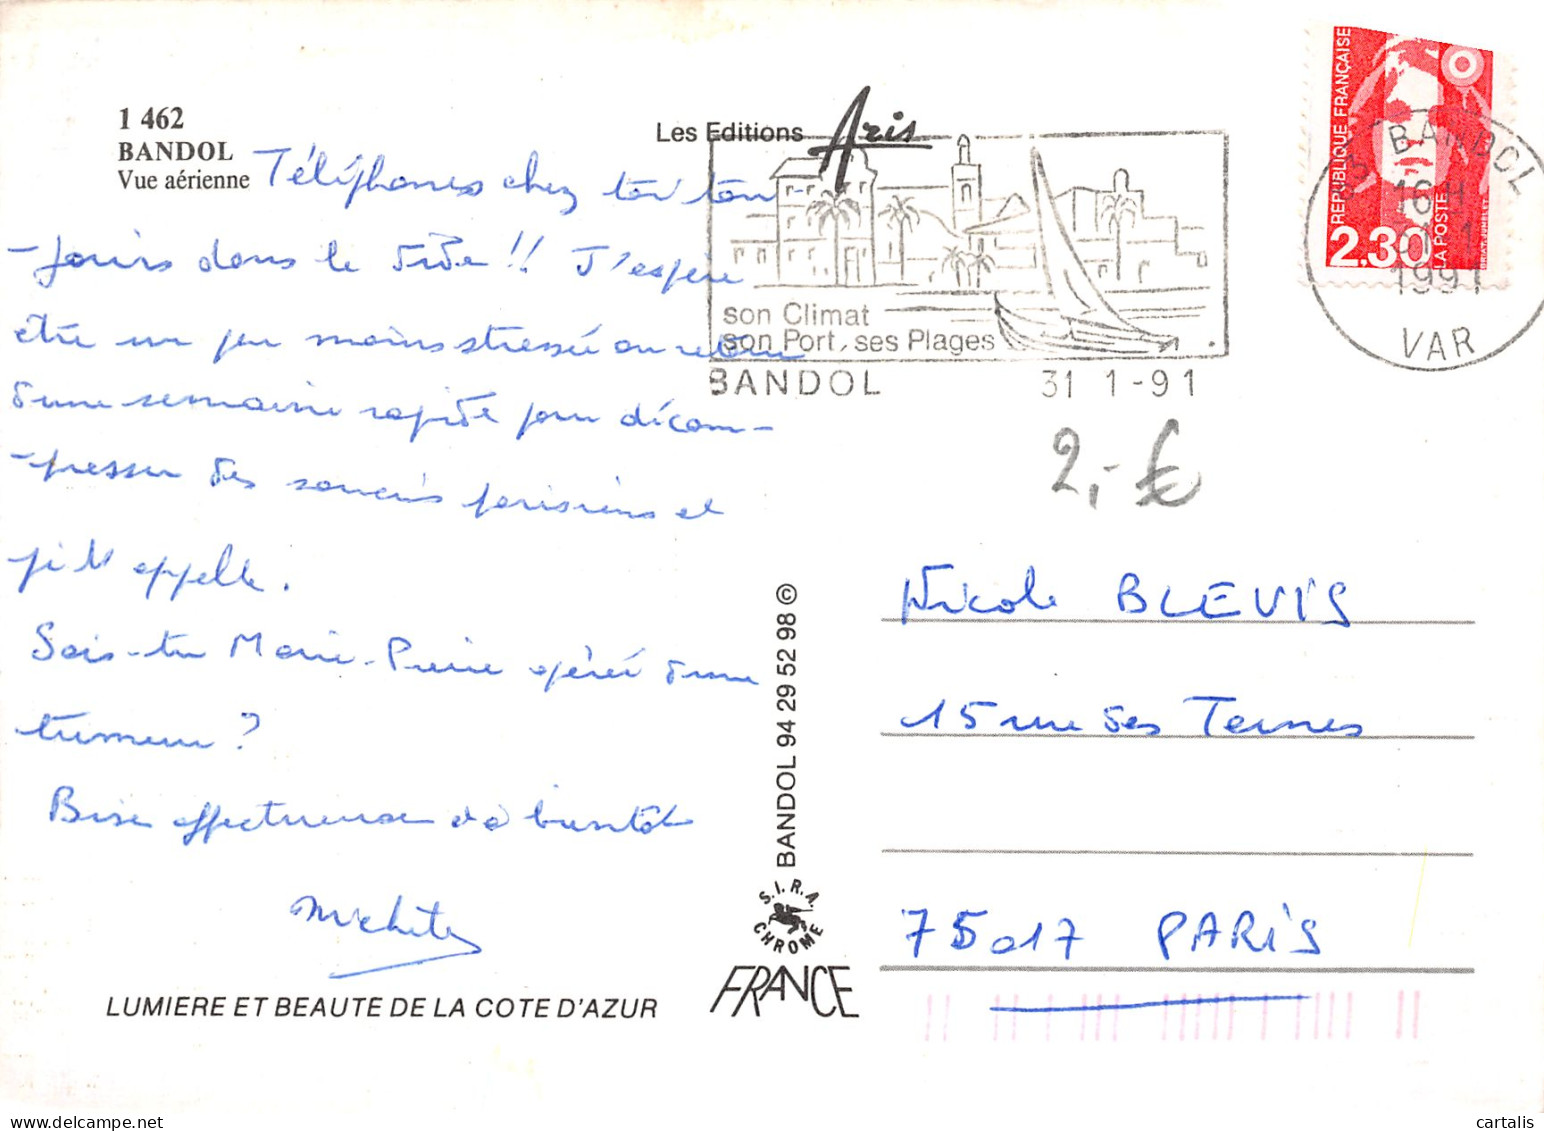 1 462
BANDOL
Vue aérienne
Téléphones chez toi tou-
-jours dans le vide !! J'espère
être un peu moins stressée au retour
d'une semaine rapide pour décom-
-presser des soucis parisiens et
je t'appelle.
Sais-tu Marie-Pierre opéré d'une
tumeur ?
Bise affectueuse et à bientôt
LUMIERE ET BEAUTE DE LA COTE D'AZUR
Les Editions Aris
son Climat
son Port, ses Plages
BANDOL 31 1-91
REPUBLIQUE FRANÇAISE
2.30
LA POSTE
BANDOL
16 H
1991
VAR
2,- €
BANDOL 94 29 52 98 ©
S.I.R.A.
CHROME
FRANCE
Nicole BLEVIS
15 rue des Ternes
75017 PARIS
cartalis